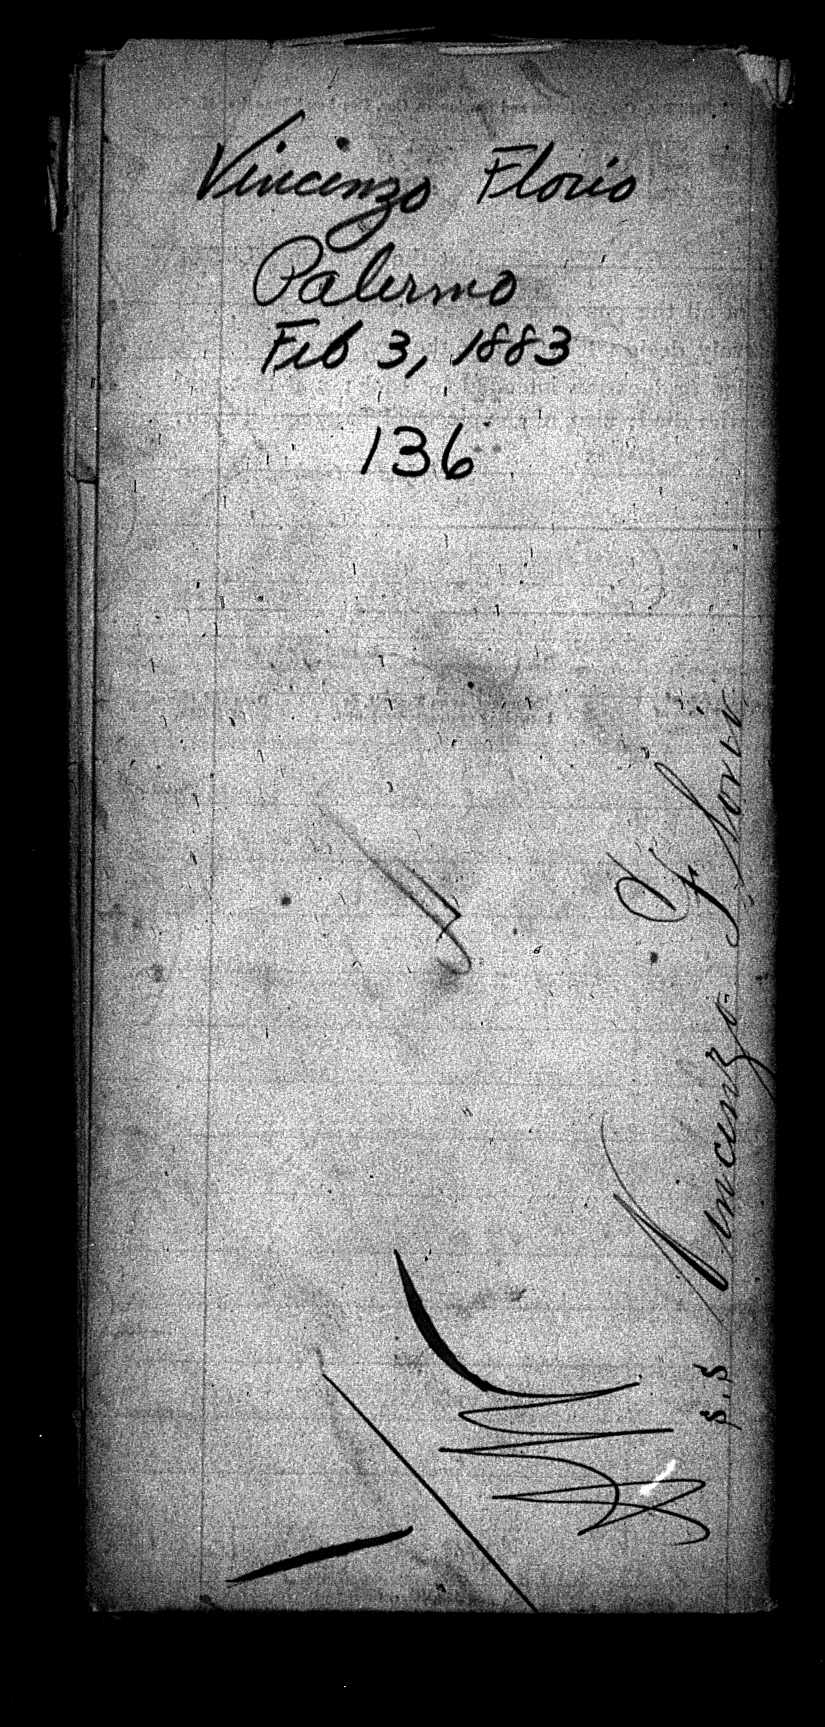 Vincenzo Florio
Palermo
Feb 3, 1883
136
S.S Vincenzo Florio